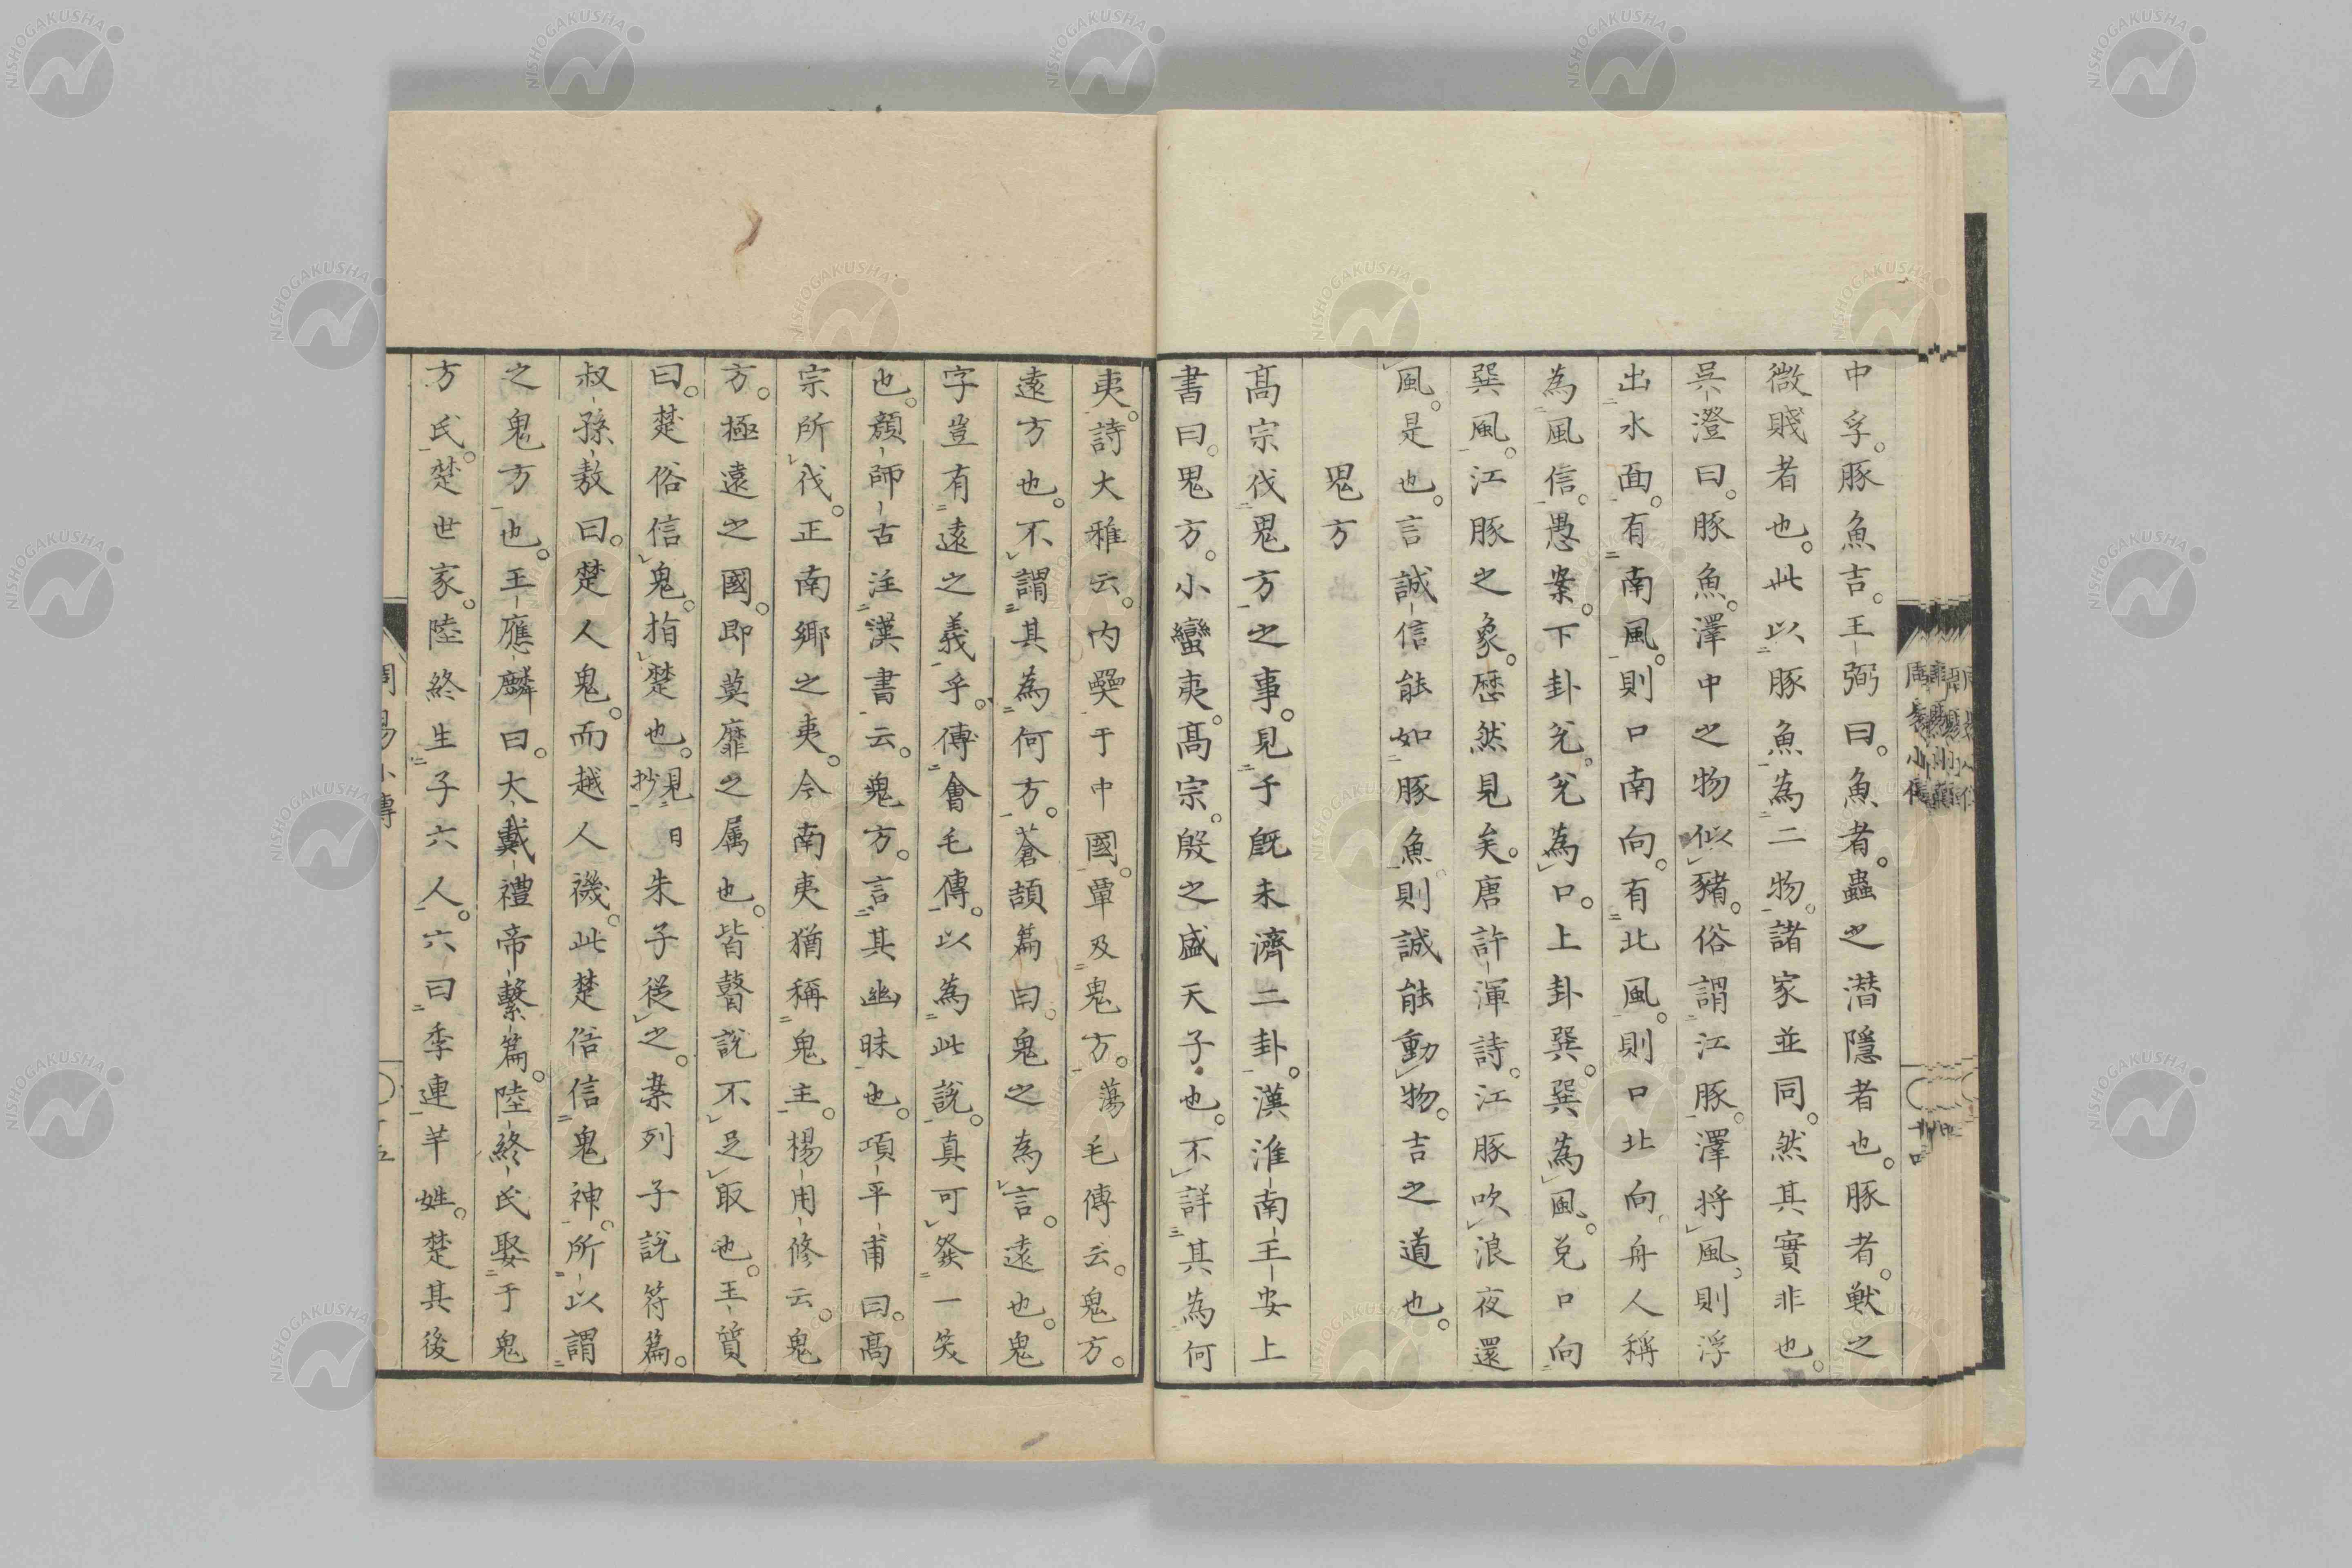 中孚。豚魚吉。王弼曰。魚者。蟲之潛隱者也。豚者。獸之
微賤者也。此以豚魚為二物。諸家並同。然其實非也。
吳澄曰。豚魚。澤中之物似豬。俗謂江豚。澤將風。則浮
出水面。有南風。則口南向。有北風。則口北向。舟人稱
為風信。愚案。下卦兌。兌為口。上卦巽。巽為風。兌口向
巽風。江豚之象。歷然見矣。唐許渾詩。江豚吹浪夜還
風。是也。言誠信能如豚魚。則誠能動物。吉之道也。
鬼方
高宗伐鬼方之事。見于既未濟二卦。漢淮南王安上
書曰。鬼方。小蠻夷。高宗。殷之盛天子也。不詳其為何
夷。詩大雅云。內奰于中國。覃及鬼方。蕩毛傳云。鬼方。
遠方也。不謂其為何方。蒼頡篇曰。鬼之為言。遠也。鬼
字豈有遠之義乎。傅會毛傳。以為此說。真可發一笑
也。顏師古注漢書云。鬼方。言其幽昧也。項平甫曰。高
宗所伐。正南鄉之夷。今南夷猶稱鬼主。楊用修云。鬼
方。極遠之國。即莫靡之屬也。皆瞽說不足取也。王質
曰。楚俗信鬼。指楚也。見日抄 朱子從之。案列子說符篇。
叔孫敖曰。楚人鬼。而越人禨。此楚俗信鬼神。所以謂
之鬼方也。王應麟曰。大戴禮帝繫篇。陸終氏娶于鬼
方氏。楚世家。陸終生子六人。六曰季連羋姓。楚其後
周易小傳